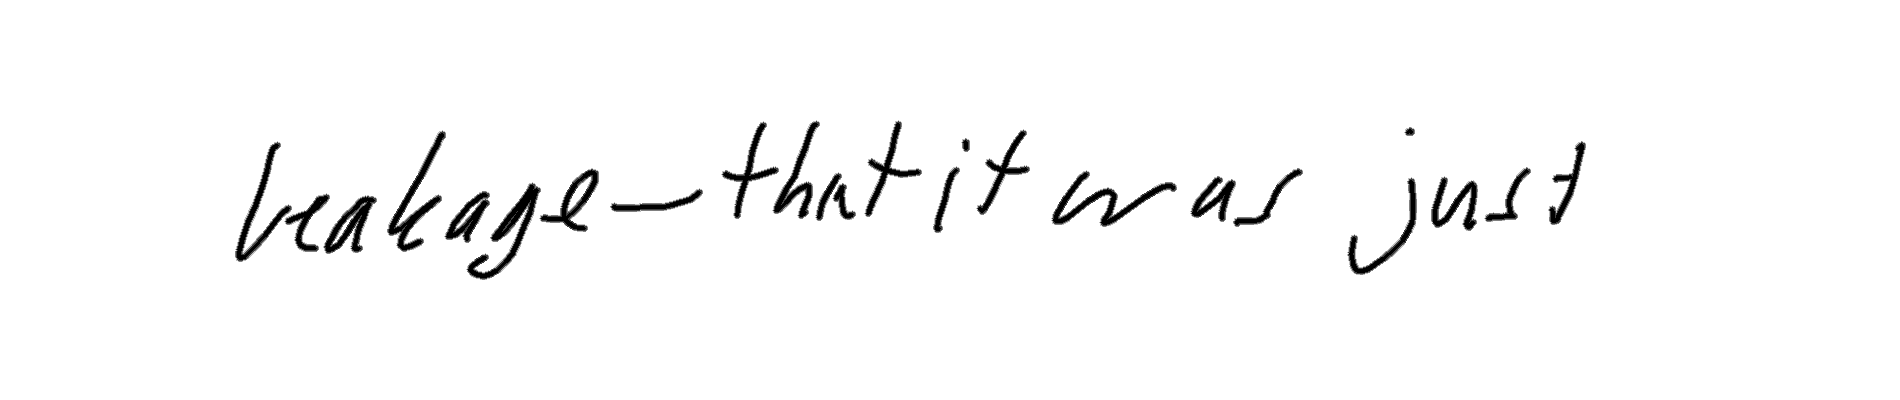 leakage—that it was just